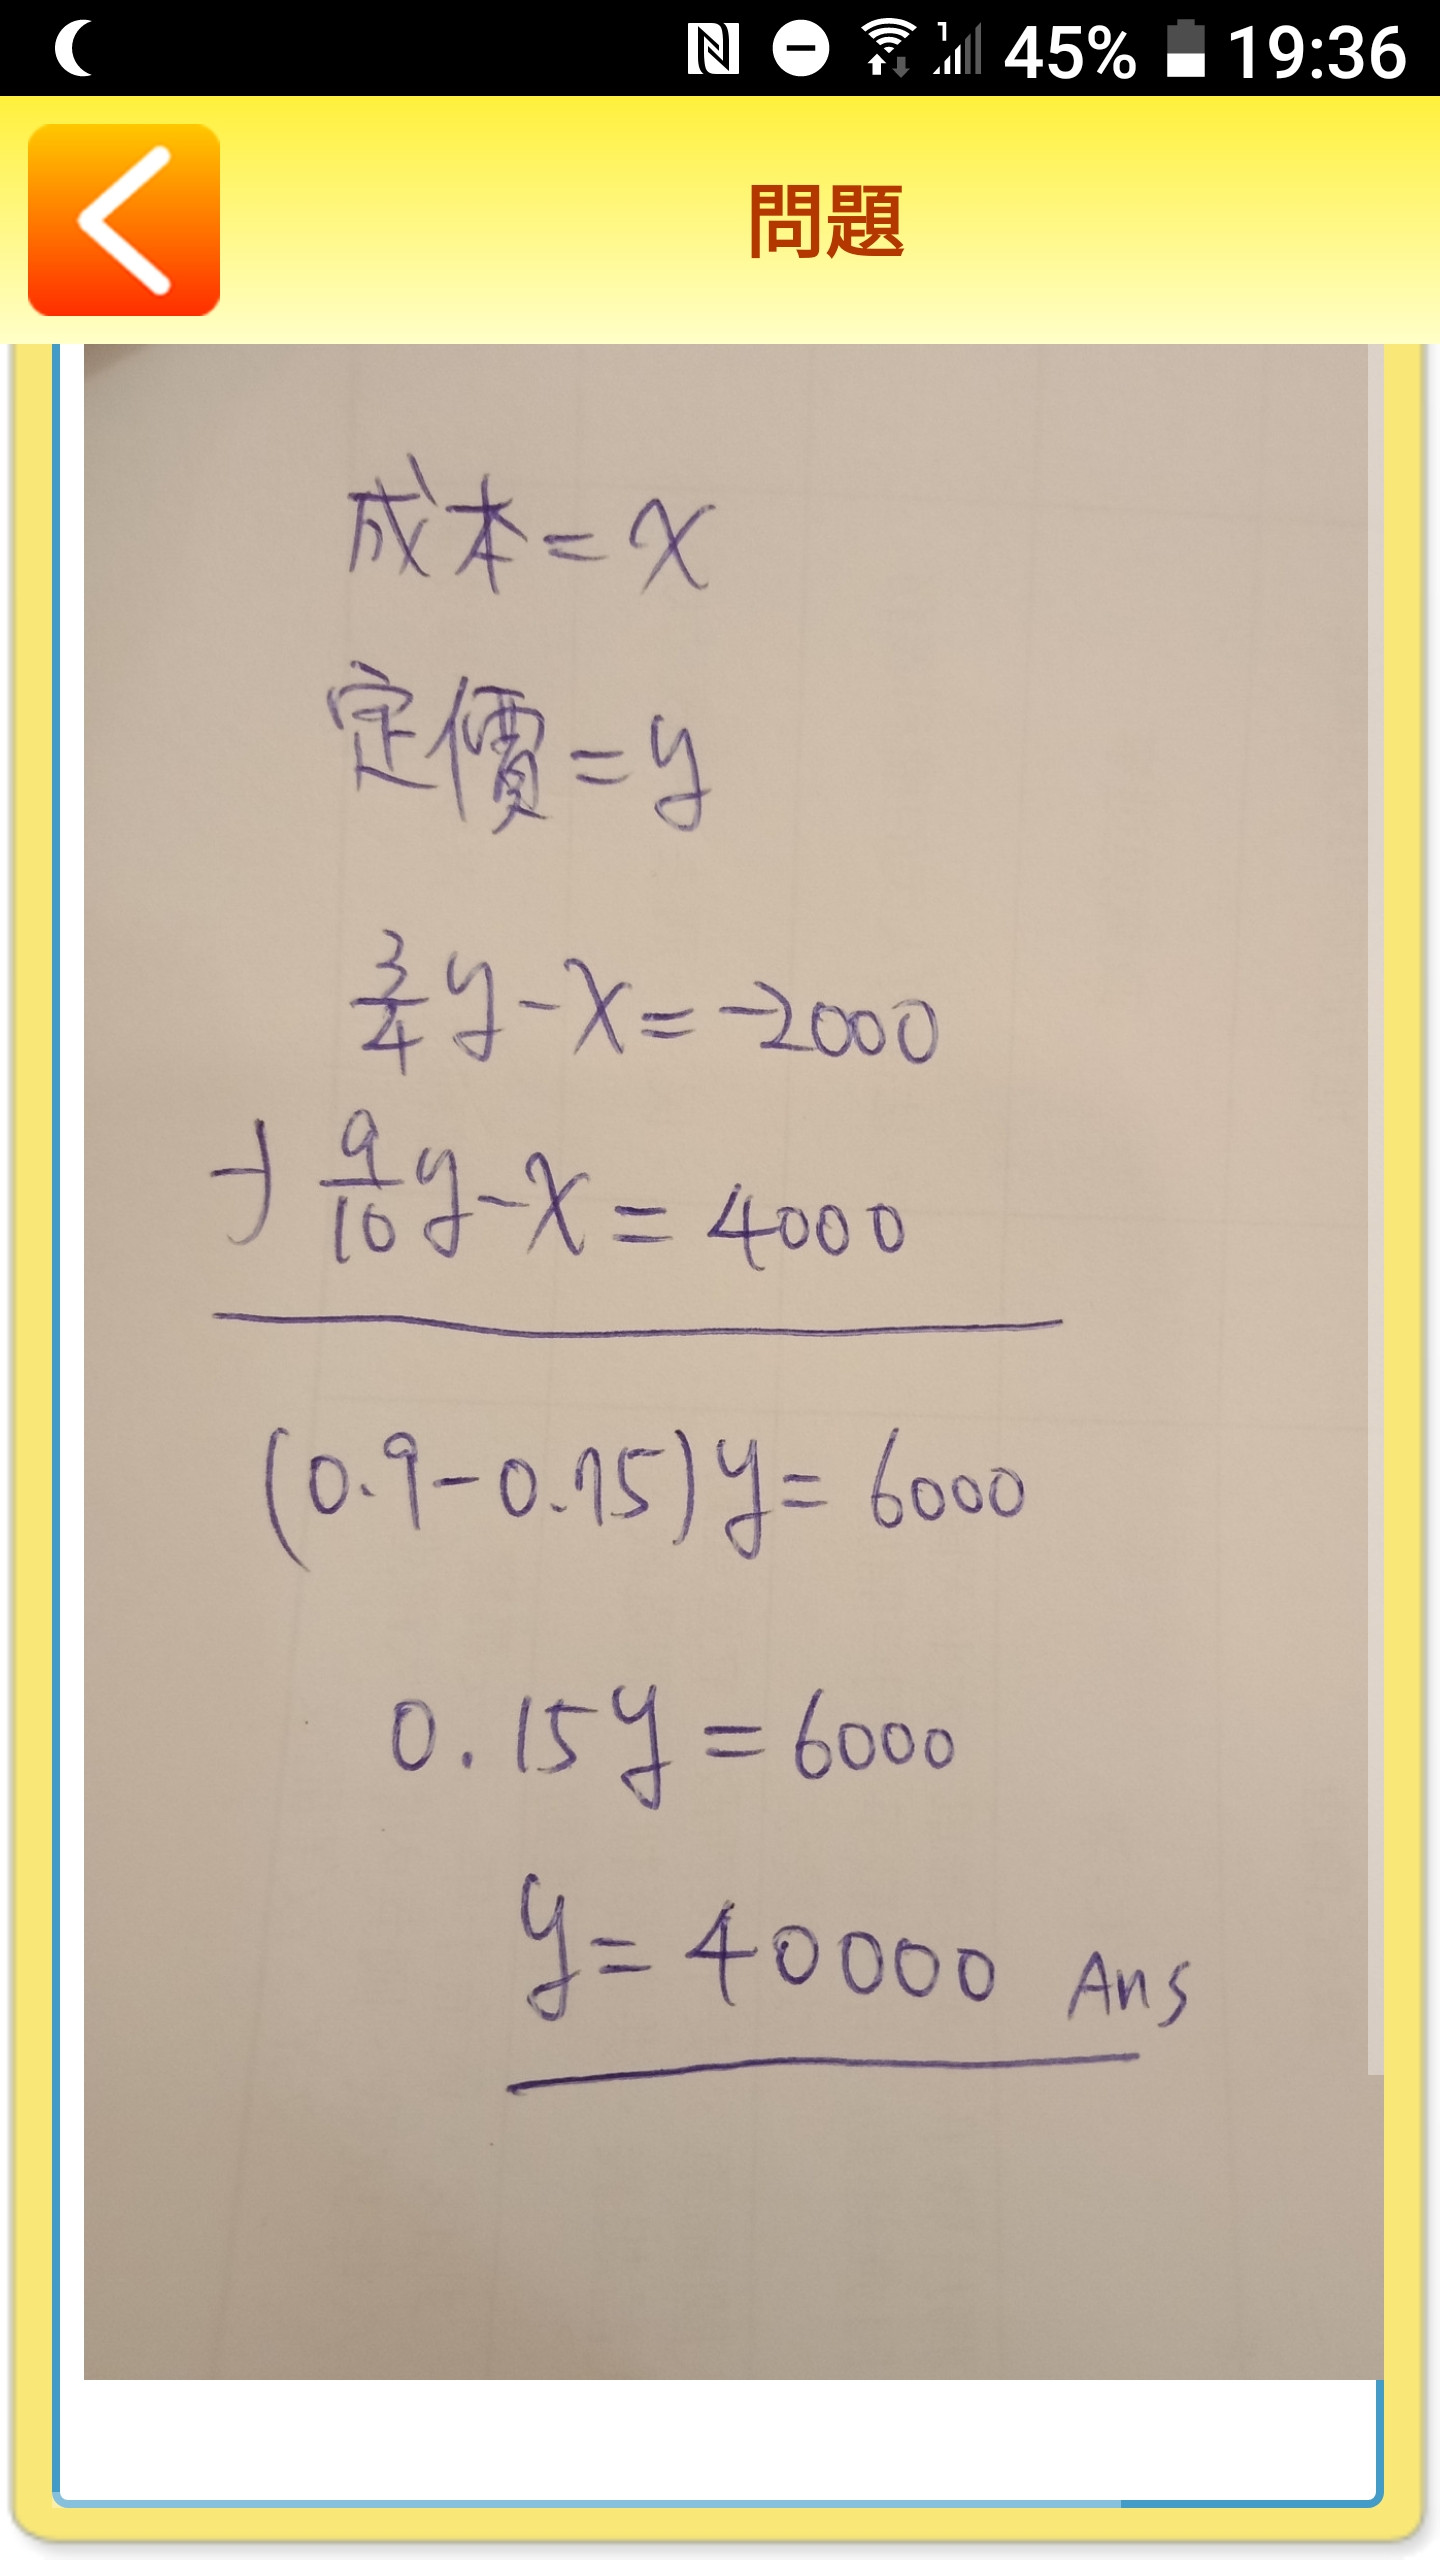 45% 19:36
問題
成本=x
定價=y
3/4 y-x=-2000
-) 9/10 y-x=4000
(0.9-0.75)y=6000
0.15y=6000
y=40000 Ans